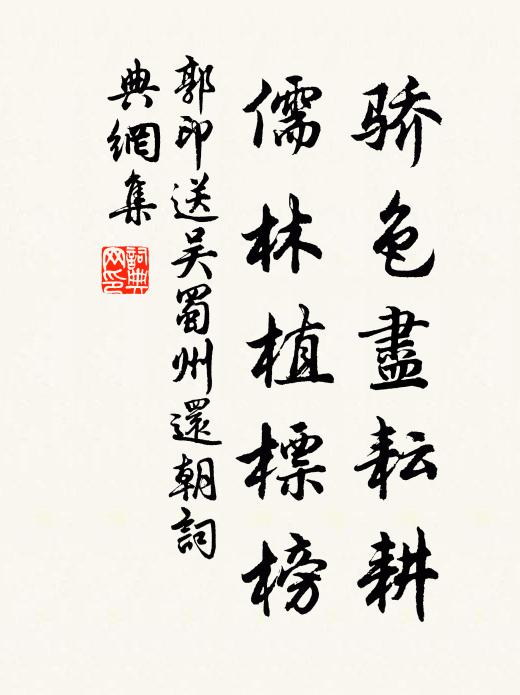 骄色盡耘耕
儒林植標榜
郭印送吴蜀州還朝詞
典網集
詞典网印